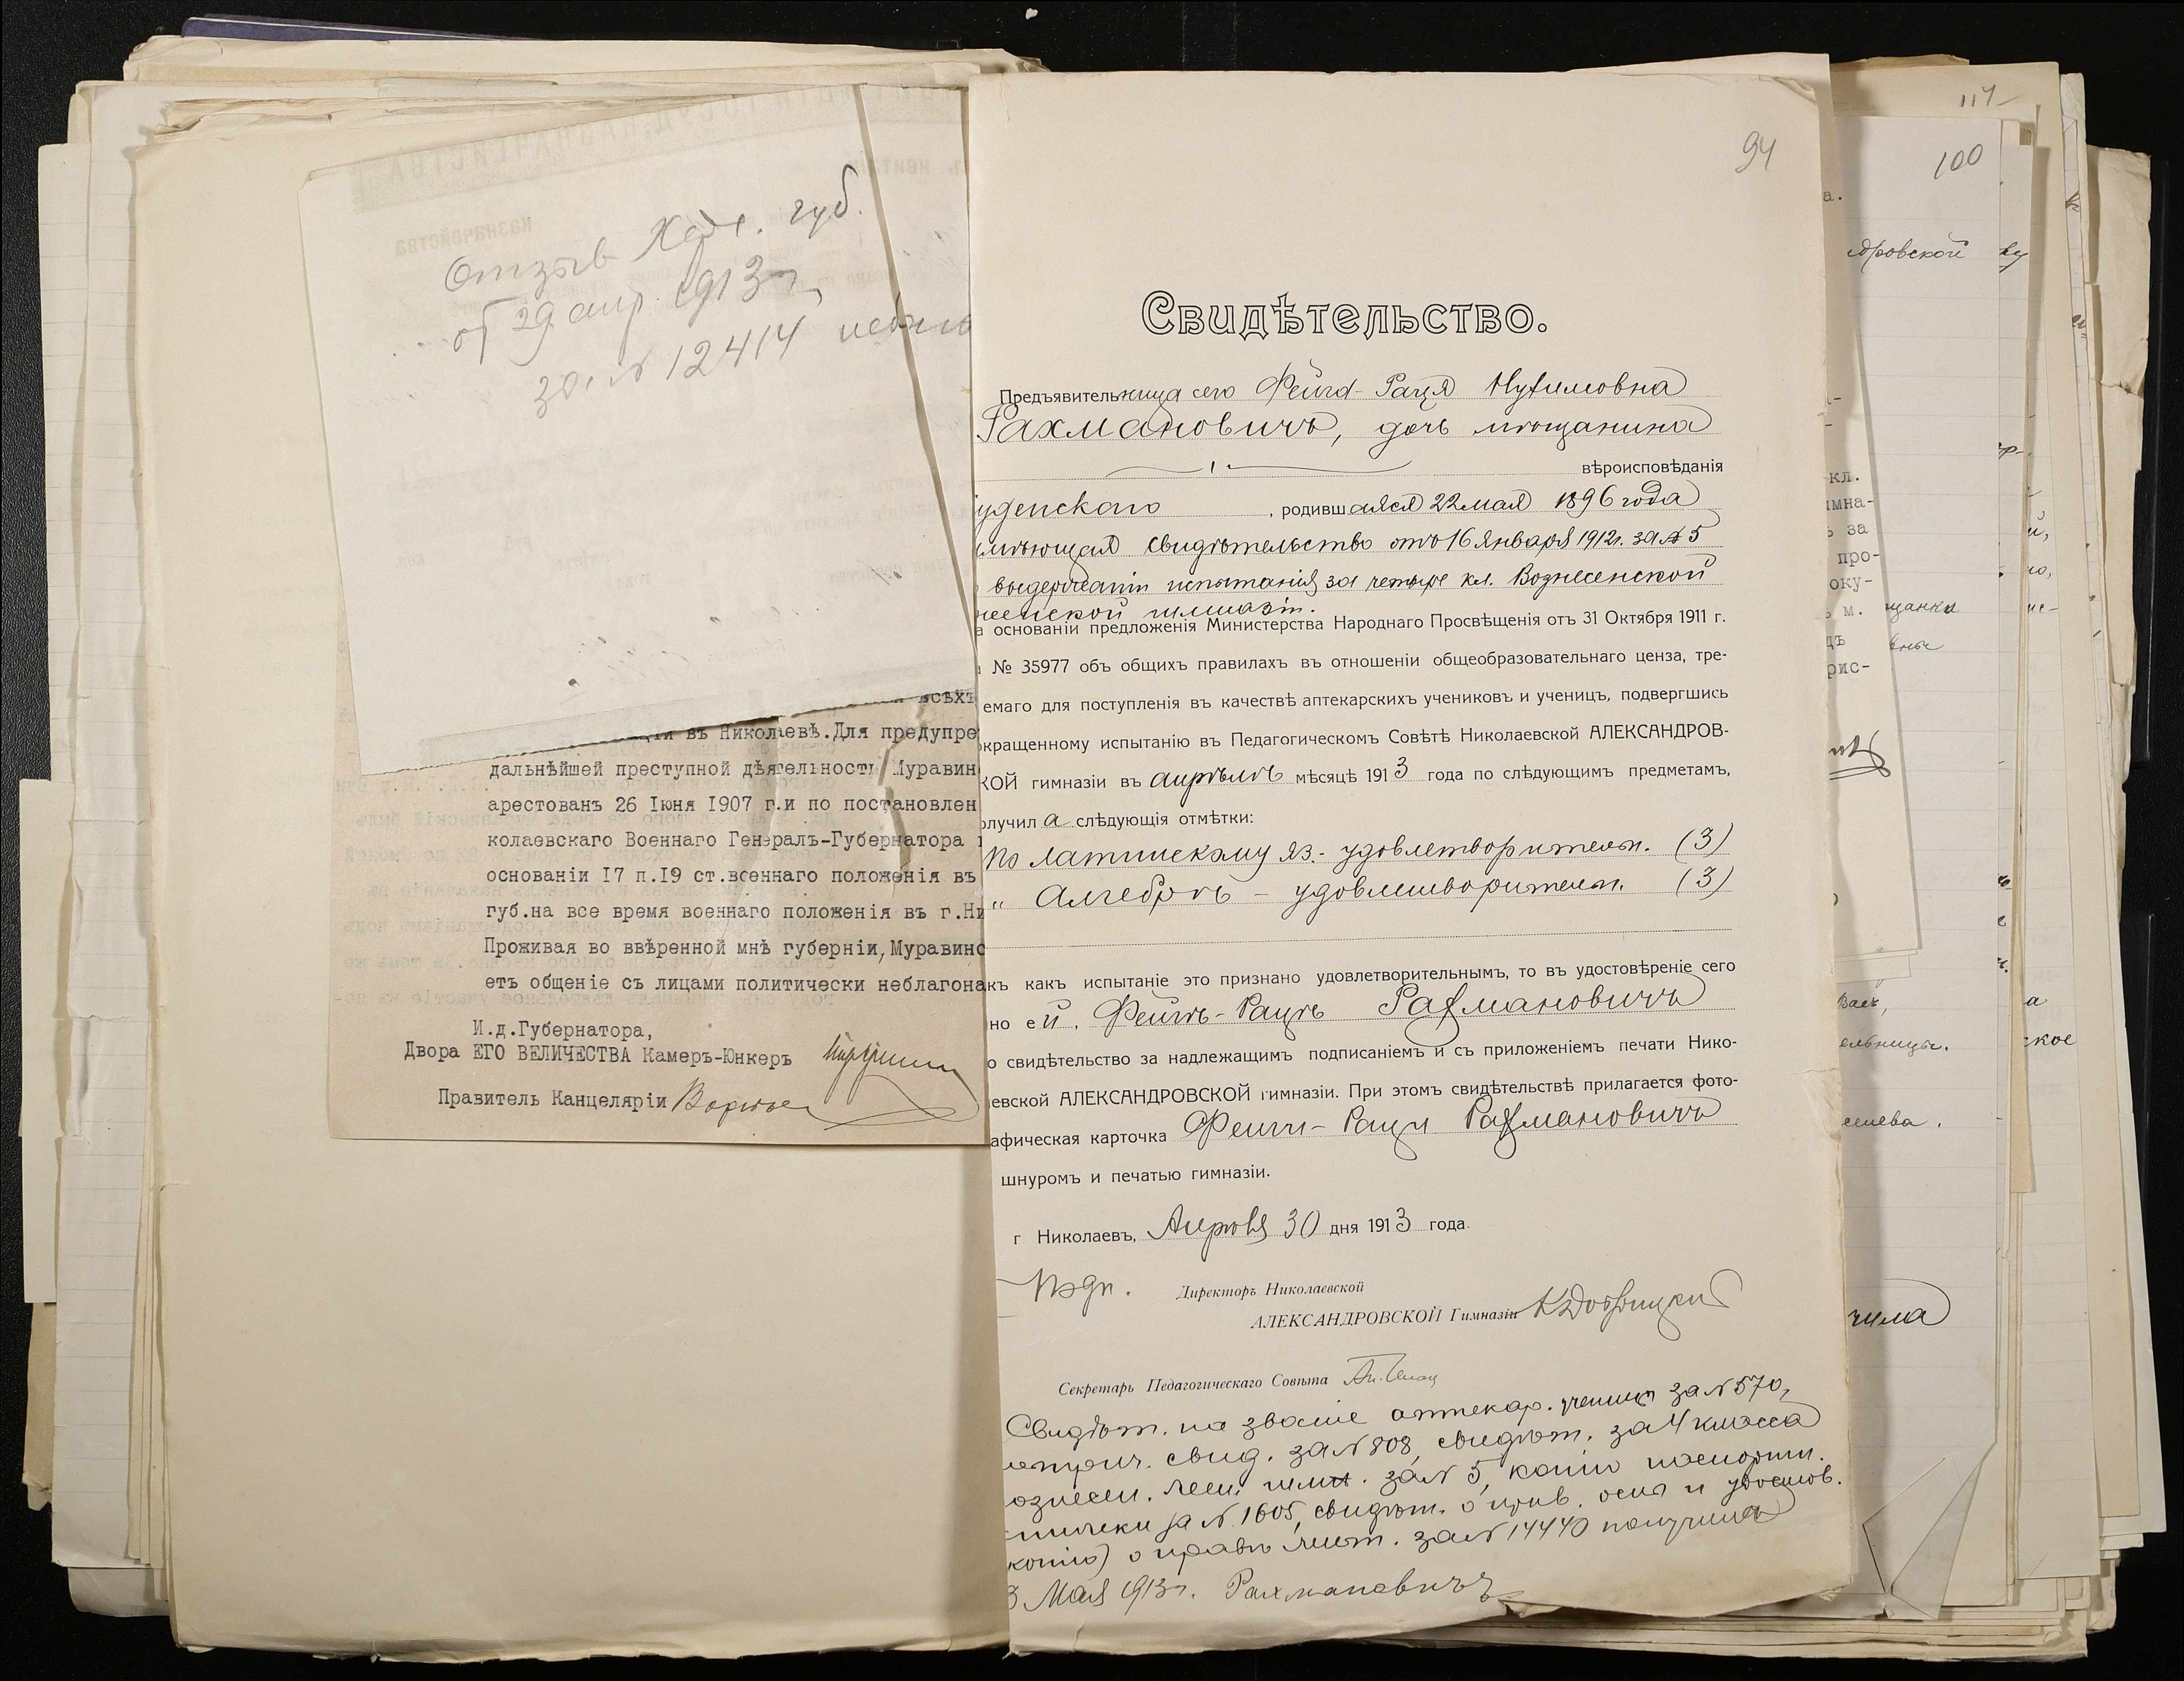 Отзывъ Херс. губ.
от 29 апр. 1913 г.
за № 12414
всѣхъ
въ Николаевѣ. Для предупре
дальнѣйшей преступной дѣятельности Муравин
арестованъ 26 Iюня I907 г. и по постановлен
колаевскаго Военнаго Генералъ-Губернатора
основаніи I7 п. I9 ст. военнаго положенія въ
губ. на все время военнаго положенія въ г. Ни
Проживая во ввѣренной мнѣ губерніи, Муравинс
етъ общеніе съ лицами политически неблагона
И.д. Губернатора,
Двора ЕГО ВЕЛИЧЕСТВА Камеръ-Юнкеръ
Правитель Канцеляріи
94
Свидѣтельство.
Предъявительница сего Фейга-Раця Нухимовна
Рахмановичъ, дочь мѣщанина
вѣроисповѣданія
удейскаго, родившаяся 22 мая 1896 года
имѣющая свидѣтельство отъ 16 Января 1912 г. за № 5
выдержаніи испытанія за четыре кл. Вознесенской
женской гимназіи.
а основаніи предложенія Министерства Народнаго Просвѣщенія отъ 31 Октября 1911 г.
№ 35977 объ общихъ правилахъ въ отношеніи общеобразовательнаго ценза, тре-
емаго для поступленія въ качествѣ аптекарскихъ учениковъ и ученицъ, подвергшись
окращенному испытанію въ Педагогическомъ Совѣтѣ Николаевской АЛЕКСАНДРОВ-
КОЙ гимназіи въ апрѣлѣ мѣсяцѣ 1913 года по слѣдующимъ предметамъ,
олучила слѣдующія отмѣтки:
По латинскому яз. - удовлетворительн. (3)
„ Алгебрѣ - удовлетворительн. (3)
къ какъ испытаніе это признано удовлетворительнымъ, то въ удостовѣреніе сего
но ей, Фейгѣ-Рацѣ Рахмановичъ
о свидѣтельство за надлежащимъ подписаніемъ и съ приложеніемъ печати Нико-
евской АЛЕКСАНДРОВСКОЙ гимназіи. При этомъ свидѣтельствѣ прилагается фото-
афическая карточка Фейги-Раци Рахмановичъ
шнуромъ и печатью гимназіи.
г Николаевъ, Апрѣля 30 дня 1913 года.
Подп. Директоръ Николаевской
АЛЕКСАНДРОВСКОЙ Гимназіи К Добрицкій
Секретарь Педагогическаго Совѣта
Свидѣт. на званіе аптекар. учениц. за № 570,
метрич. свид. за № 808, свидѣт. за 4 класса
ознесен. жен. гимн. за № 5, копію паспортн.
книжки за № 1605, свидѣт. о прив. оспы и удостов.
(копію) о правѣ жит. за № 14440 получила
3 Мая 1913 г. Рахмановичъ
117
100
яровской
кл.
имна-
ъ за
про-
оку-
ъ м.
щанка
рис-
ельницы.
ское
чила